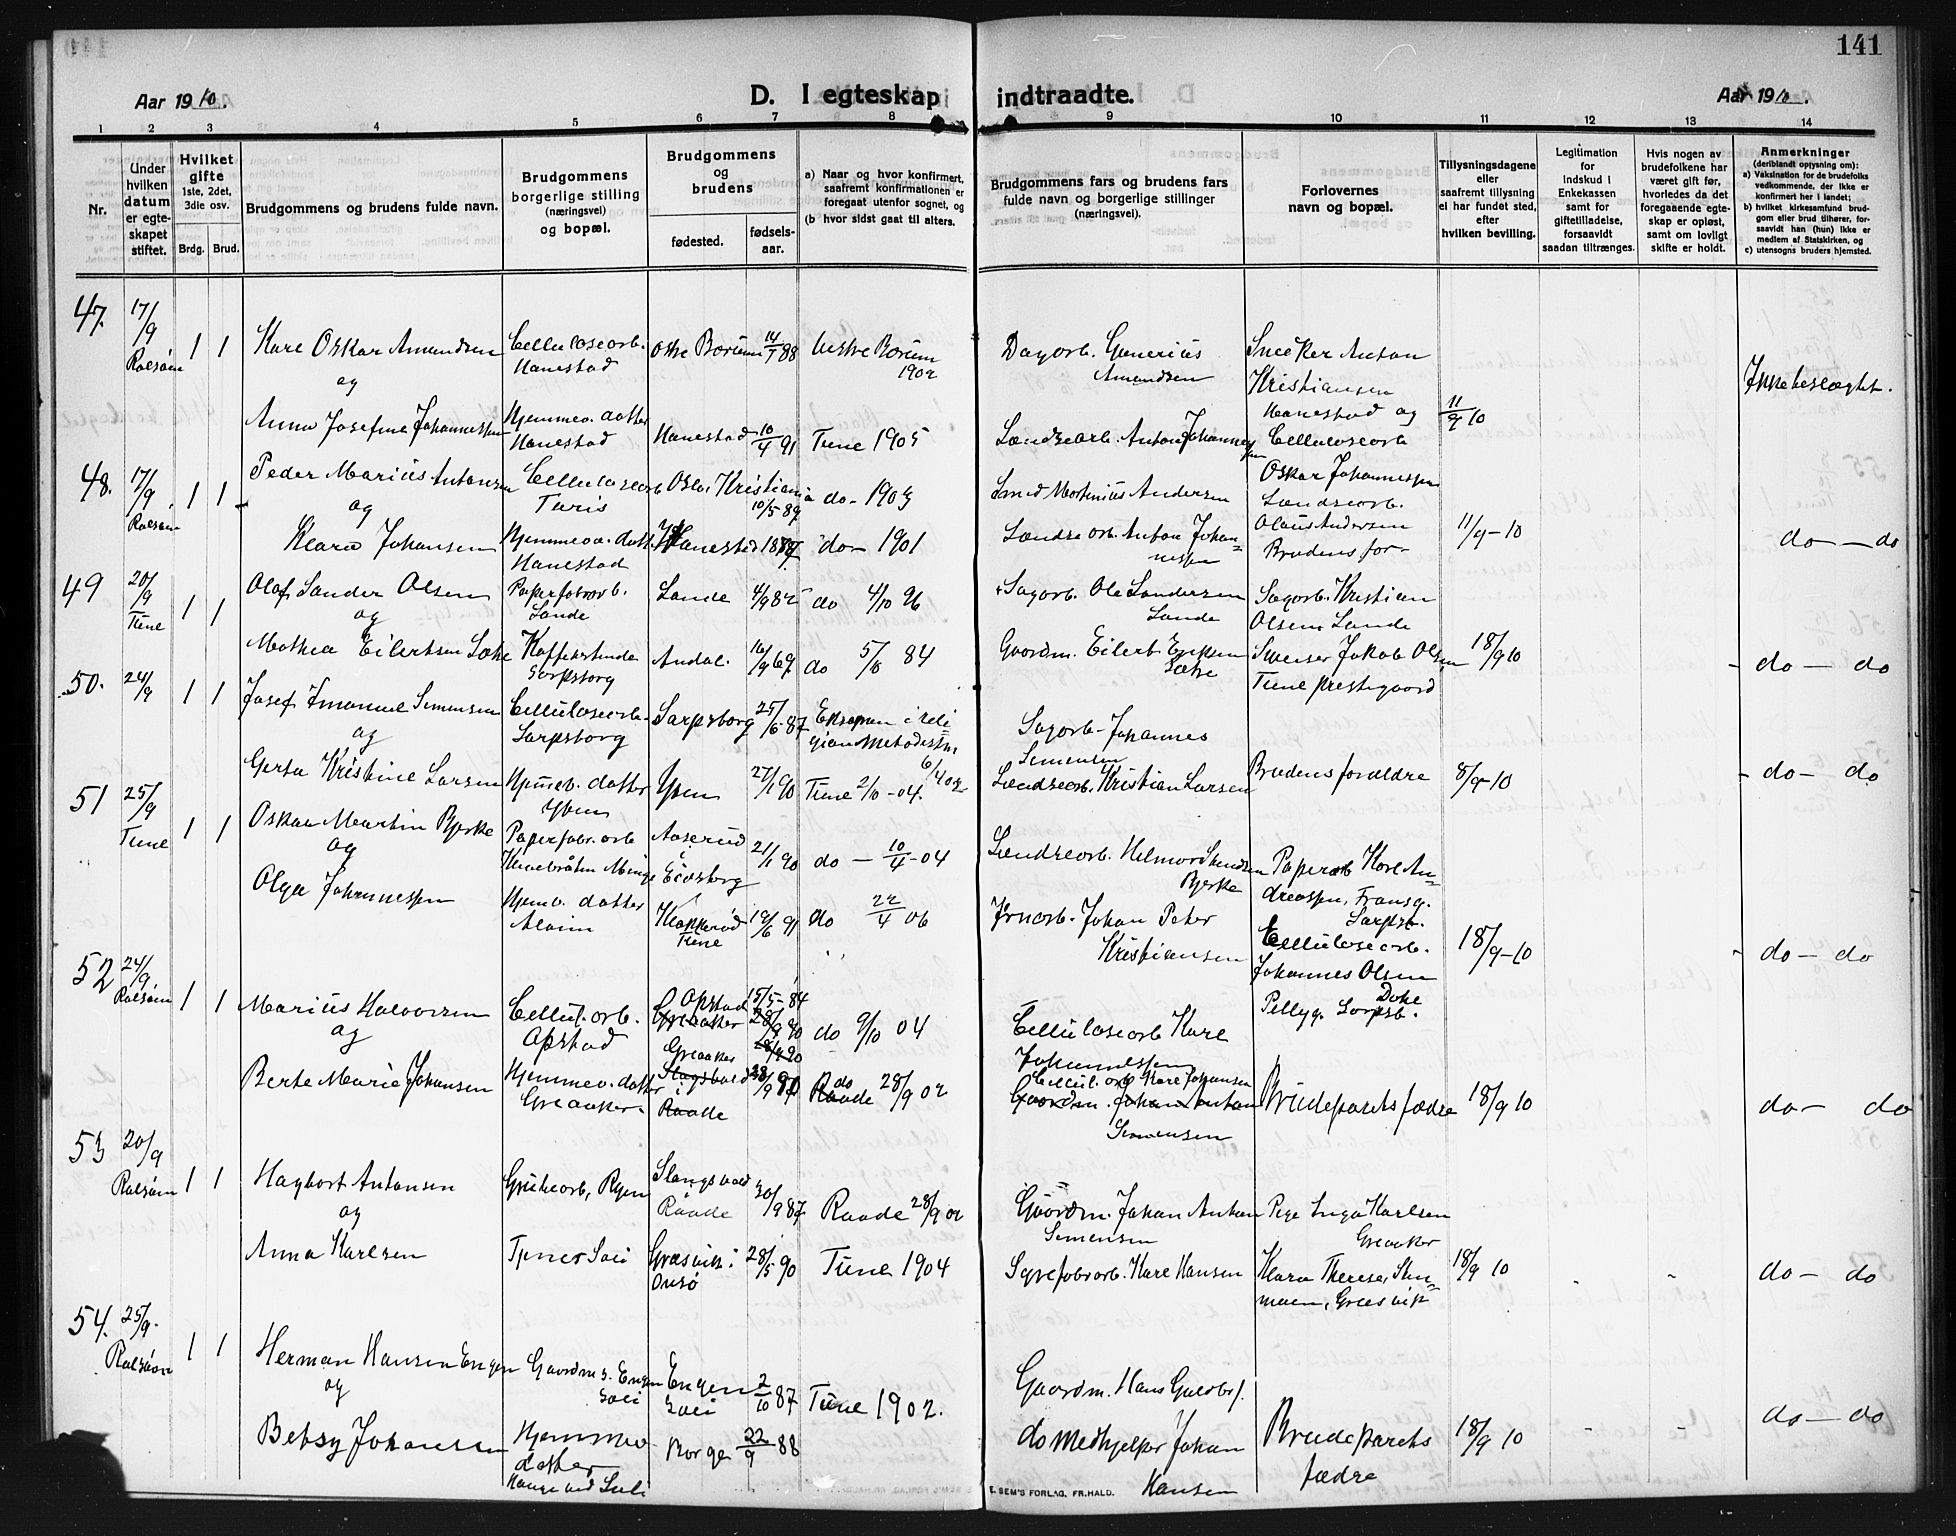 141
Aar 1910.
D. I egteskap indtraadte.
Aar 1910.
1 2 3 4 5 6 7 8 9 10 11 12 13 14
Nr.
Under hvilken datum er egteskapet stiftet.
Hvilket gifte 1ste, 2det, 3die osv.
Brdg. Brud.
Brudgommens og brudens fulde navn.
Brudgommens borgerlige stilling (næringsvei) og bopæl.
Brudgommens og brudens
fødested.
fødselsaar.
a) Naar og hvor konfirmert, saafremt konfirmationen er foregaat utenfor sognet, og
(b hvor sidst gaat til alters.
Brudgommens fars og brudens fars fulde navn og borgerlige stillinger (næringsvei).
Forlovernes navn og bopæl.
Tillysningsdagene eller saafremt tillysning ei har fundet sted, efter hvilken bevilling.
Legitimation for Indskud i Enkekassen samt for giftetilladelse, forsaavidt saadan tiltrænges.
Hvis nogen av brudefolkene har været gift før, hvorledes da det foregaaende egteskap er opløst, samt om lovligt skifte er holdt.
Anmerkninger
(deriblandt oplysning om):
a) Vaksination for de brudefolks vedkommende, der ikke er konfirmert her i landet;
b) hvilket kirkesamfund brudgom eller brud tilhører, forsaavidt han (hun) ikke er medlem af Statskirken, og
c) utensogns bruders hjemsted.
47. 17/9 Rolsøen 1 1
Karl Oskar Amundsen
og
Anna Josefine Johannessen
Celluloseorb. Hanestad
Hjemmev. datter Hanestad
Hanestad 10/4 91
1902
Tune 1905
Dagorb. Gunerius Amundsen
Landseorb. Anton Johannessen
Snedker Anton Kristiansen Hanestad og Celluloseorb Oskar Johannessen
11/9 10
Ikke beslægtet.
48. 17/9 Rolsøen 1 1
Peder Marius Antonsen
og
Klara Johansen
Celluloseorb Turis
Hjemmev. datt. Hanestad
Kristiania 10/5 89
Hanestad 1887
do- 1903
do- 1901
Smed Martinius Andersen
Landseorb. Anton Johannessen
Landseorb. Olaus Andersen
Brudens far-
11/9-10
do - do
49 20/9 Tune 1 1
Olaf Sander Olsen
og
Mathea Eilertsen
Papirfabrorb. Lande
Sarpsborg
Lande 4/9 82
do 4/10 96
do 5/10 84
Sagorb. Ole Sandersen Lande
Gaardm. Eilert
Sagorb. Kristian Olsen Lande
Jakob Olsen Tune prestegaard
18/9 10
do - do
50. 24/9 1 1
Josef Imanuel Simensen
og
Gerta Kristine Larsen
Celluloseorb- Sarpsborg
Hjemev. datter Yven
Sarpsborg 25/6 87
Yven 27/1 90
Eksamen i religion
6/4 02
Tune 2/10-04.
Sagorb- Johannes Simensen
Landseorb. Kristian Larsen
Brudens forældre
8/9-10
do - do
51 25/9 Tune 1 1
Oskar Martin Bjerke
og
Olga Johannessen
Papirfabr. orb
Hjemv. datter Alvim
Aaserud i Eidsberg 21/1 90
Tune 19/6 91
do - 10/4-04
do 22/4 06
Landseorb. Helmer
Bjerke
Johan Peter Kristiansen
Papirorb Karl Andreassen,
Celluloseorb. Johannes Olsen
18/9-10
do - do
52 24/9 Rolsøen 1 1
Marius Halvorsen
og
Berte Marie Johansen
Cellul. orb. Opstad
Hjemmev. datter Greaaker
Opstad 15/5-84
Greaaker
Raade
do 9/10 04
do 28/9 02
Celluloseorb Karl Johannessen
Cellul. orb Karl Johansen
Gaardm. Johan Anton Simensen
Brudeparets fædre
18/9 10
do - do
53 20/9 Rolsøen 1 1
Hagbart Antonsen
og
Anna Karlsen
Slangsvold Raade 30/9 87
Græsvik i Onsø 28/5 90
Raade 28/9 02
Tune 1904
Gaardm. Johan Anton Simensen
Syrefabrorb. Karl Hansen
Pige Inga Karlsen Greaaker
Klara Therese
18/9 10
do - do
54. 25/9. Rolsøen 1 1
Herman Hansen Engen
og
Betsy Johansen
Gaardm s. Engen Soli
Hjemmev datter
Engen Soli 2/10 87
Borge 22/9 88
Tune 1902.
Gaardm. Hans
do Medhjelper Johan Hansen
Brudeparets fædre
18/9 10
do - do
E. SEM'S FORLAG, FR.HALD.